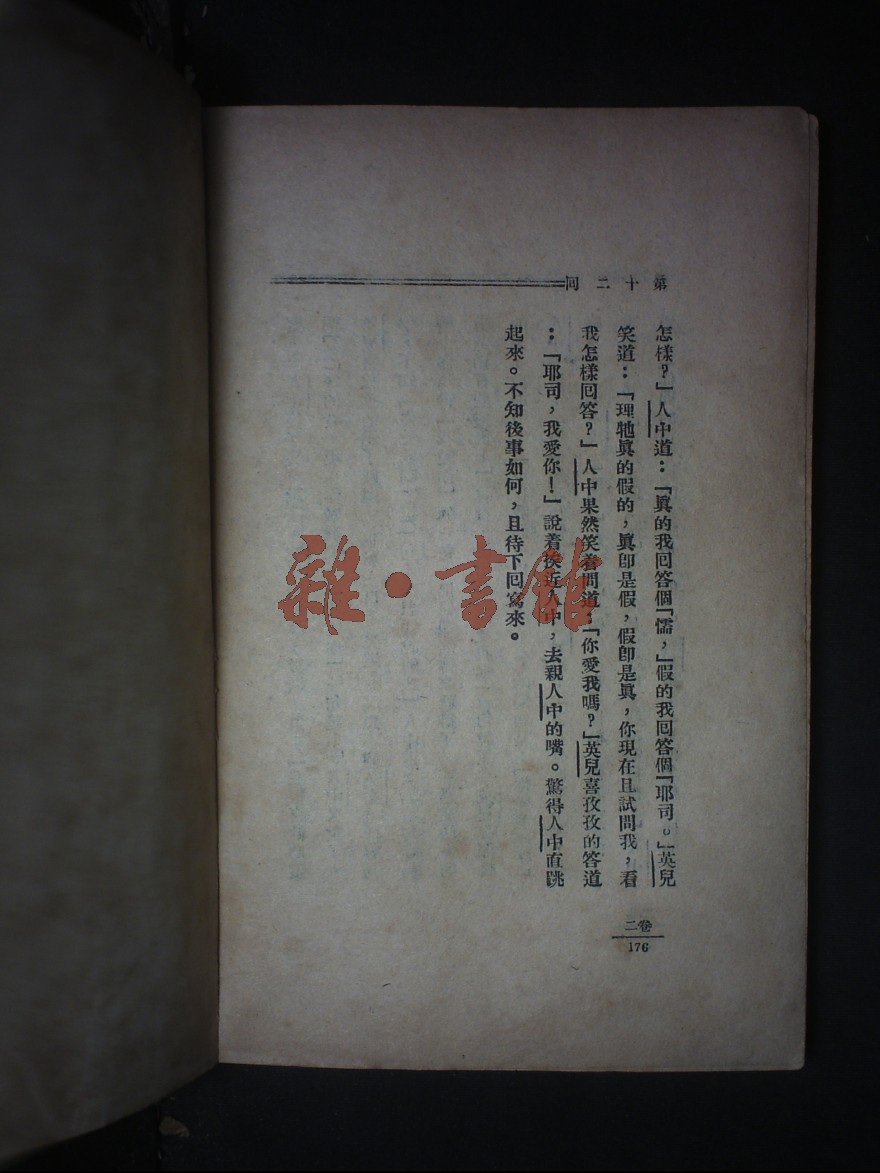 第十二回
怎樣？」人中道：「眞的我回答個「懦，」假的我回答個「耶司。」英兒
笑道：「理牠眞的假的，眞卽是假，假卽是眞，你現在且試問我，看
我怎樣回答？」人中果然笑着問道：「你愛我嗎？」英兒喜孜孜的答道
：「耶司，我愛你！」說着挨近人中，去親人中的嘴。驚得人中直跳
起來。不知後事如何，且待下回寫來。
二卷
176
雜·書館